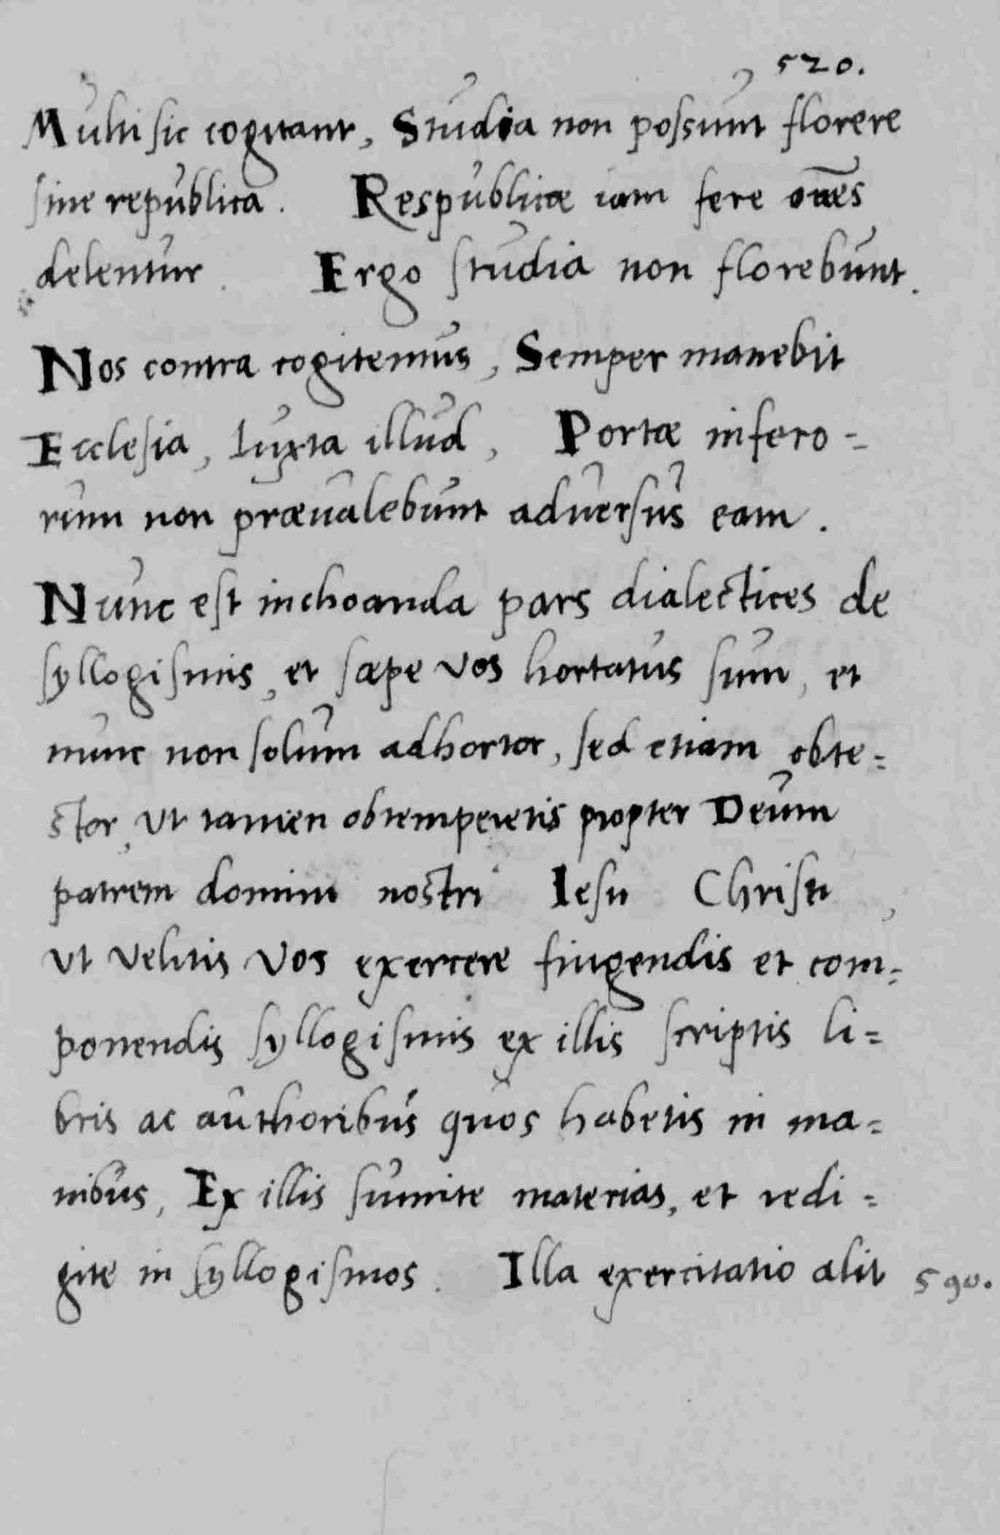 520.
Multi sic cogitant, Studia non possunt florere
sine republica. Respublicæ iam fere om̄es
delentur. Ergo studia non florebunt.
Nos contra cogitemus, Semper manebit
Ecclesia, Iuxta illud, Portæ infero=
rum non prævalebunt adversus eam.
Nunc est inchoanda pars dialectices de
syllogismis, et sæpe vos hortatus sum, et
nunc non solum adhortor, sed etiam obte=
stor, ut tamen obtemperetis propter Deum
patrem domini nostri Iesu Christi,
ut velitis vos exercere fingendis et com=
ponendis syllogismis ex illis scriptis li=
bris ac authoribus quos habetis in ma=
nibus, Ex illis sumite materias, et redi=
gite in syllogismos. Illa exercitatio alit
590.